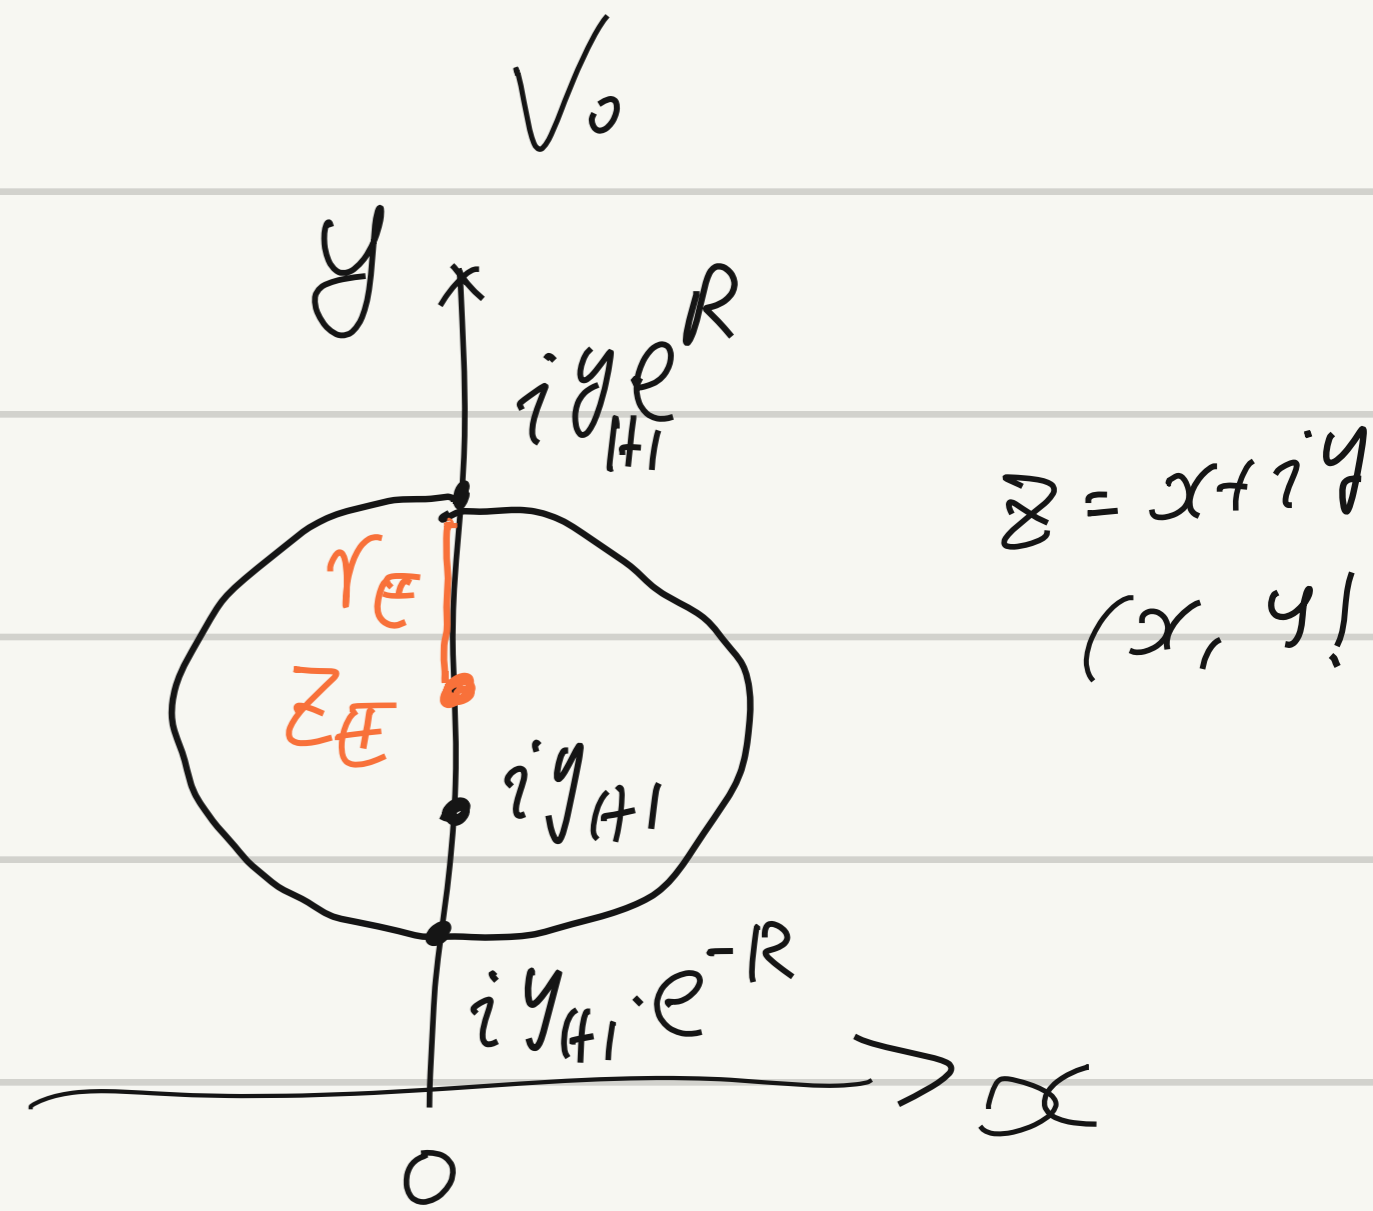 V₀
y
iy_{H}e^{R}
z = x + iy
(x, y)
r_{E}
z_{E}
iy_{H}
iy_{H}·e^{-R}
x
0